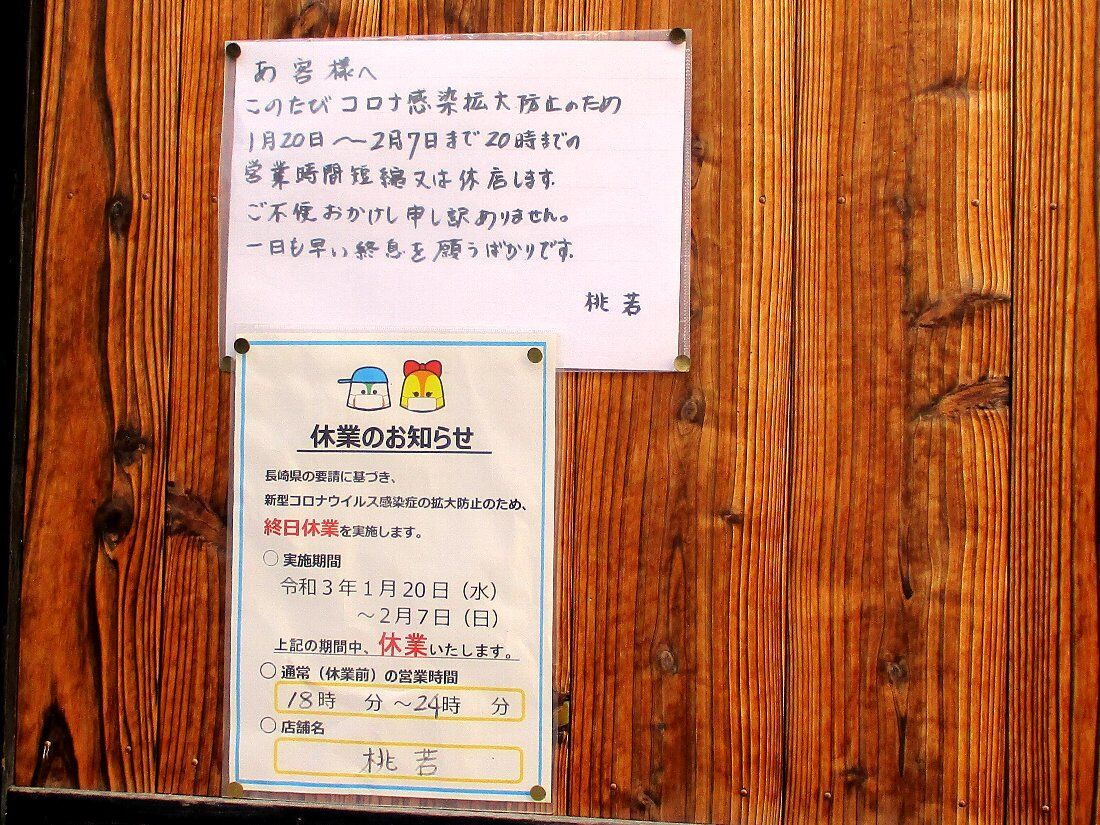 お客様へ
このたびコロナ感染拡大防止のため
1月20日～2月7日まで20時までの
営業時間短縮又は休店します.
ご不便おかけし申し訳ありません。
一日も早い終息を願うばかりです.
桃若
休業のお知らせ
長崎県の要請に基づき、
新型コロナウイルス感染症の拡大防止のため、
終日休業を実施します。
○ 実施期間
令和3年1月20日（水）
～2月7日（日）
上記の期間中、休業いたします。
○ 通常（休業前）の営業時間
18時 分～24時 分
○ 店舗名
桃若